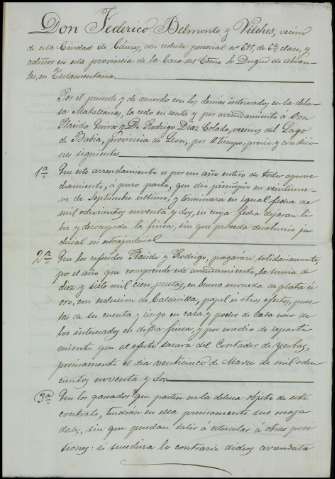 Don Federico Belmonte y Vilches, vecino
de esta Ciudad de Cáceres, con cédula personal nº 615, de 6ª clase, y
en esta provincia de la Casa del Excmo. Sr. Duque de Abran-
tes, en Extremadura.
Por el presente y de acuerdo con los demás interesados en la dehe-
sa Matallanas, la cedo en renta y por arrendamiento a Don
Plácido y D. Rodrigo Díaz Colado, vecinos del Lago
de Babia, provincia de León, por el tiempo, precio y condicio-
nes siguientes
1ª Que este arrendamiento es por un año entero de todo aprove-
chamiento, a puro pasto, que dio principio en veintinueve
de Septiembre último, y terminará en igual fecha de
mil ochocientos noventa y dos, en cuya fecha dejarán li-
bre y desocupada la finca, sin que preceda desahucio ju-
dicial ni extrajudicial
2ª Que los referidos Plácido y Rodrigo, pagarán solidariamente
por el año que comprende este arrendamiento, la suma de
diez y siete mil cien pesetas, en buena moneda de plata ú
oro, con exclusión de calderilla, papel ú otros efectos, pues-
tas de su cuenta y riesgo en casa y poder de cada uno de
los interesados en dicha finca, y por medio de reparti-
miento que al efecto sacará el Contador de yerbas,
precisamente el día veinticinco de Marzo de mil ocho-
cientos noventa y dos
3ª Que los ganados que pasten en la dehesa objeto de este
contrato, tendrán en ella precisamente sus maja-
das, sin que puedan salir á á otras pose-
siones: si sucediera lo contrario